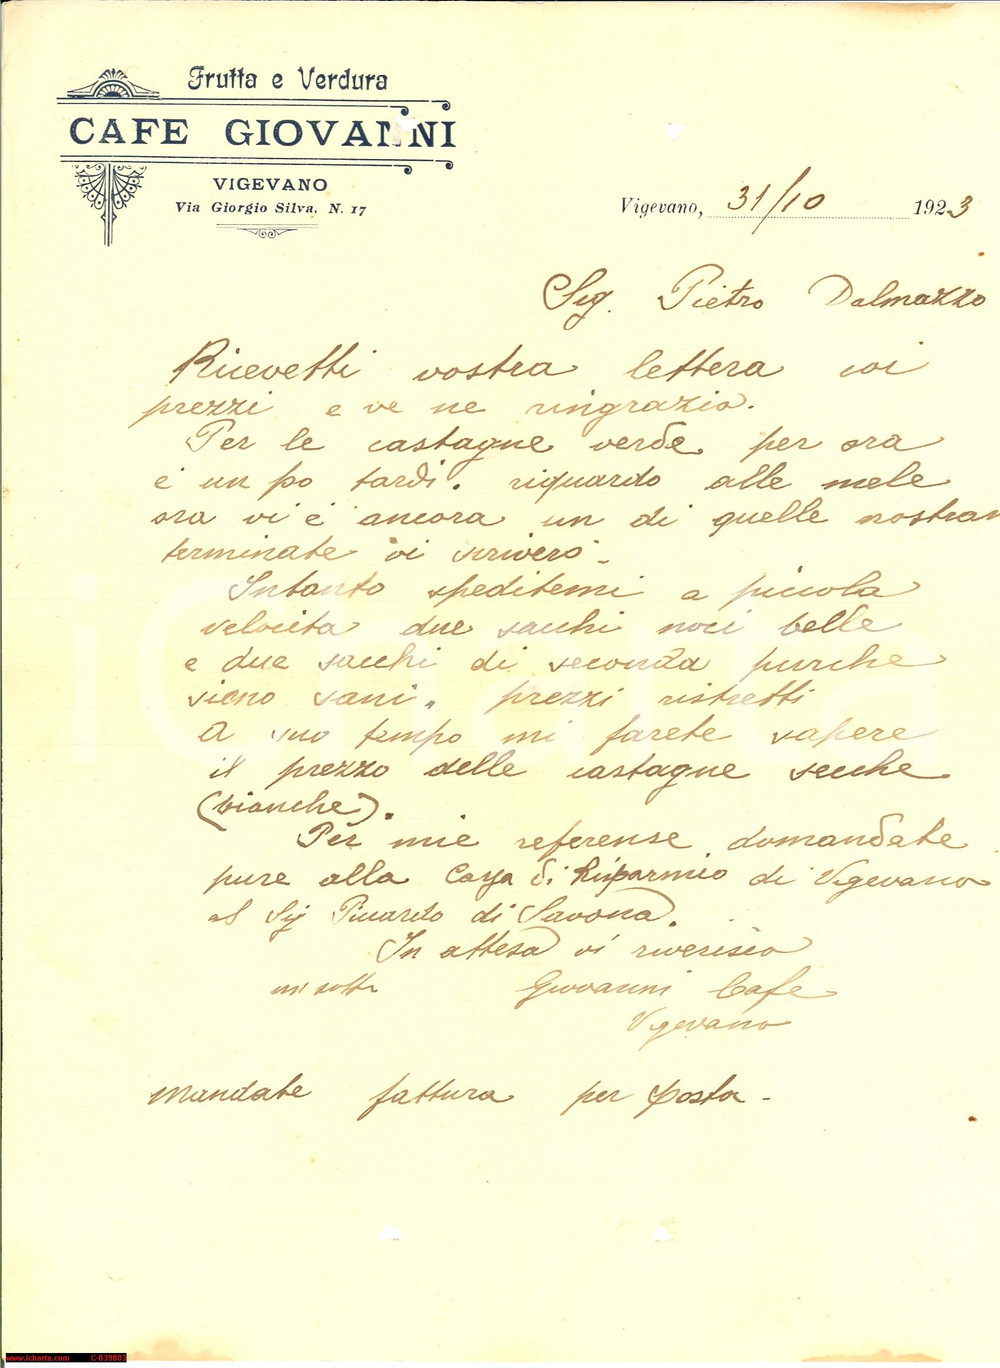 Frutta e Verdura
CAFE GIOVANNI
VIGEVANO
Via Giorgio Silva, N. 17
Vigevano, 31/10 1923
Sig. Pietro Dalmazzo
Ricevetti vostra lettera coi
prezzi e ve ne ringrazio.
Per le castagne verde per ora
è un po tardi. riguardo alle mele
ora vi è ancora un di quelle nostran
terminate vi scriverò -
Intanto speditemi a piccola
velocita due sacchi noci belle
e due sacchi di seconda purche
siano sani. prezzi ristretti
A suo tempo mi farete sapere
il prezzo delle castagne secche
(bianche).
Per mie referense domandate
pure alla Cassa di Risparmio di Vigevano
al Sig Picardo di Savona.
In attesa vi riverisco
Giovanni Cafe
Vigevano
Mandate fattura per posta -
iCharta
www.icharta.com C-039003